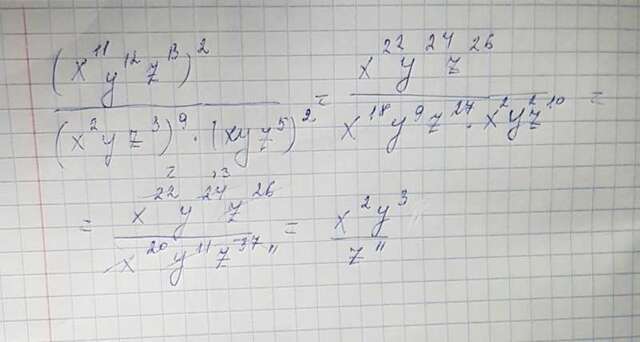 (x¹¹y¹²z¹³)² / (x²yz³)⁹·(xyz⁵)² = x²²y²⁴z²⁶ / x¹⁸y⁹z²⁷·x²y²z¹⁰ =
= x²²y²⁴z²⁶ / x²⁰y¹¹z³⁷ = x²y³ / z¹¹